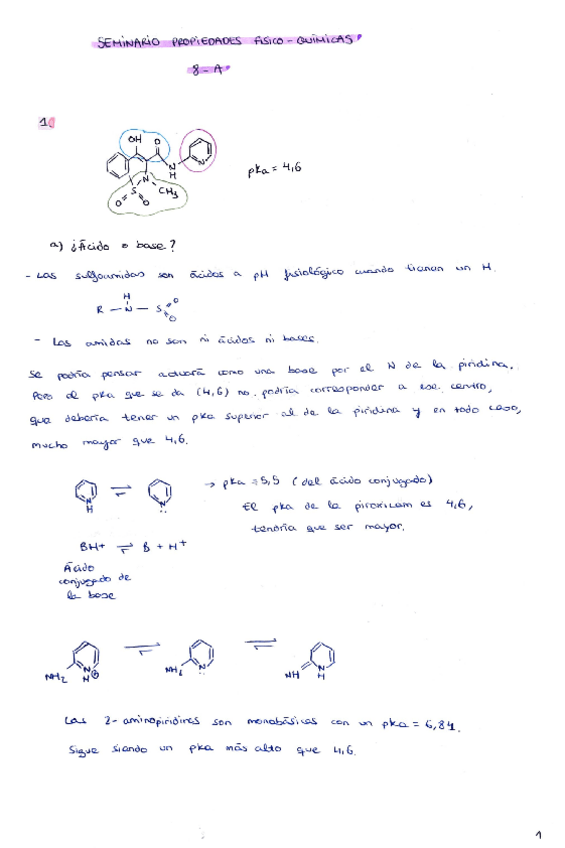 SEMINARIO PROPIEDADES FISICO-QUÍMICAS
8-A
1.
OH O
N
H
N
N
CH3
S
O O
pka = 4,6
a) ¿Ácido o base?
- Las sulfonamidas son ácidos a pH fisiológico cuando tienen un H.
H
R - N - S O
O
- Las amidas no son ni ácidos ni bases.
Se podría pensar actuará como una base por el N de la piridina.
Pero el pka que se da (4,6) no podría corresponder a ese centro,
que debería tener un pka superior al de la piridina y en todo caso,
mucho mayor que 4,6.
N
H
N
→ pka = 5,5 (del ácido conjugado)
El pka de la piroxicam es 4,6,
tendría que ser mayor.
BH+ ⇌ B + H+
Ácido
conjugado de
la base
NH2 N
H
NH2 N
NH N
H
Las 2-aminopiridinas son monobásicas con un pka = 6,84.
Sigue siendo un pka más alto que 4,6.
1